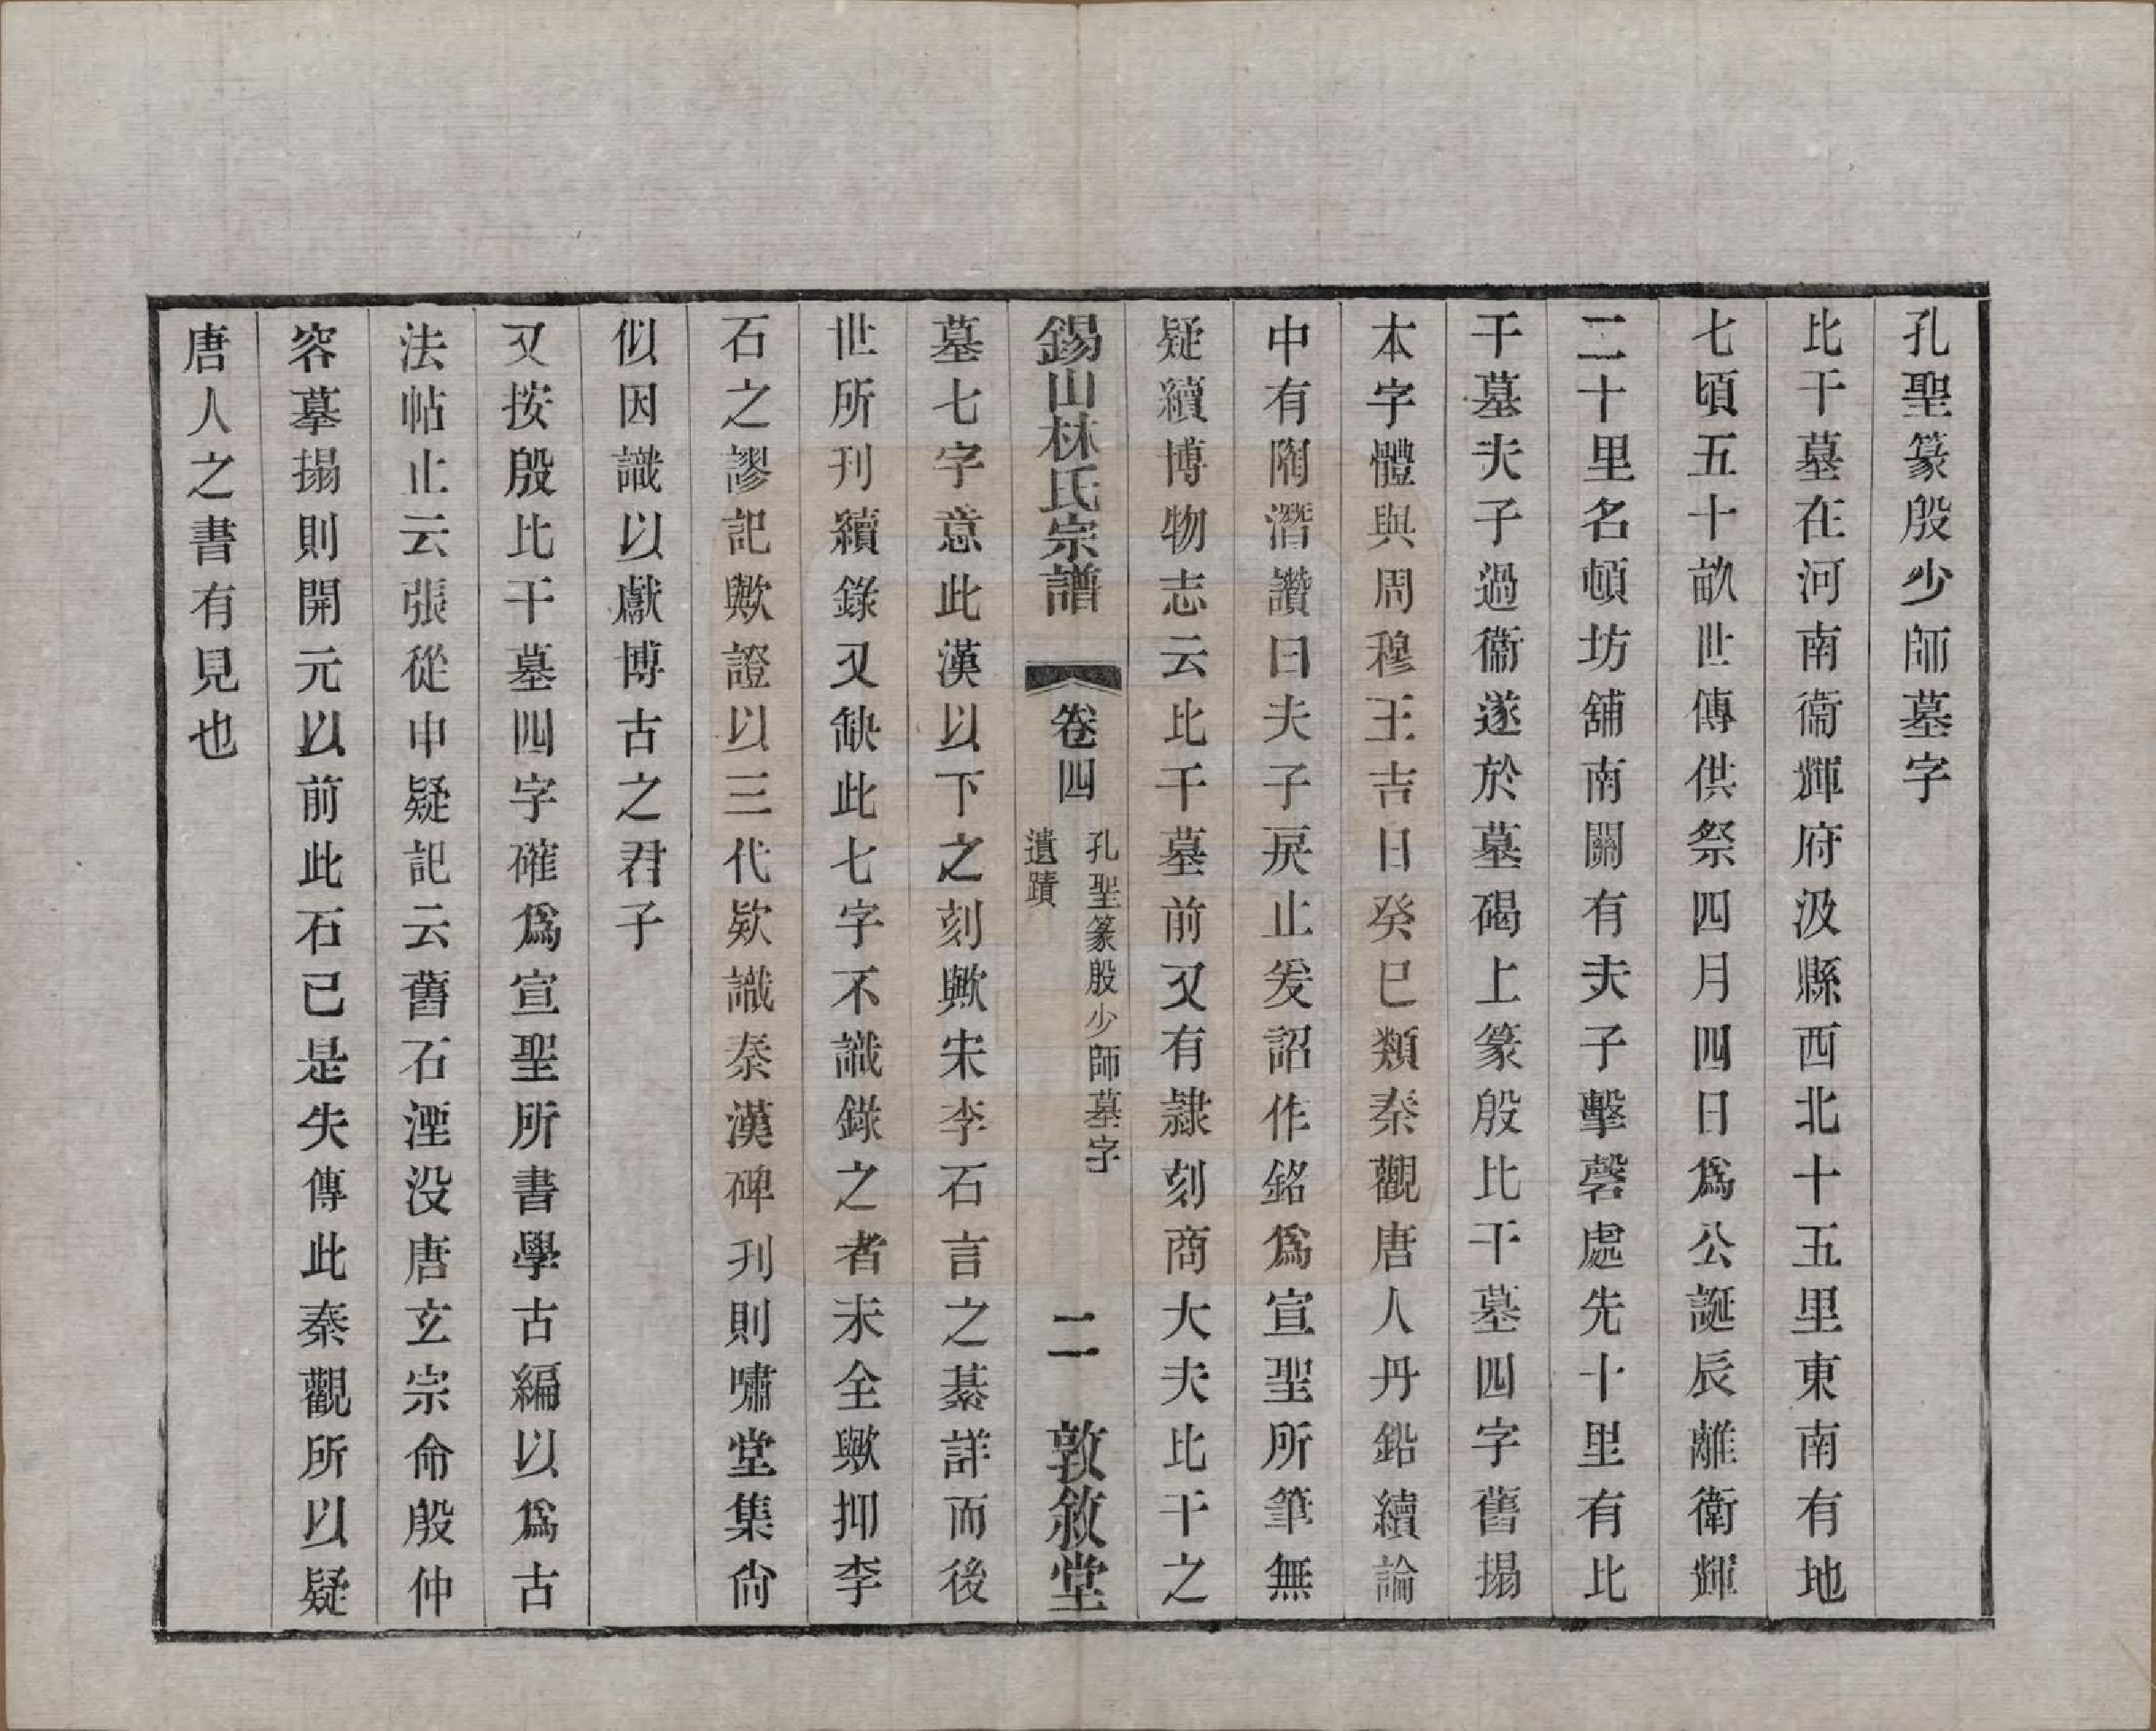 孔聖篆殷少師墓字
比干墓在河南衞輝府汲縣西北十五里東南有地
七頃五十畝世傳供祭四月四日爲公誕辰離衛輝
二十里名頓坊舖南關有夫子擊磬處先十里有比
干墓夫子過衞遂於墓碣上篆殷比干墓四字舊搨
本字體與周穆王吉日癸巳類秦觀唐人丹鉛續論
中有陶潛讚曰夫子戾止爰詔作銘爲宣聖所筆無
疑續博物志云比干墓前又有隷刻商大夫比干之
錫山林氏宗譜
卷四
孔聖篆殷少師墓字
遺蹟
二
敦敘堂
墓七字意此漢以下之刻歟宋李石言之綦詳而後
世所刊續錄又缺此七字不識錄之者未全歟抑李
石之謬記歟證以三代欵識秦漢碑刊則嘯堂集尙
似因識以獻博古之君子
又按殷比干墓四字確爲宣聖所書學古編以爲古
法帖止云張從申疑記云舊石湮没唐玄宗命殷仲
容摹搨則開元以前此石已是失傳此秦觀所以疑
唐人之書有見也